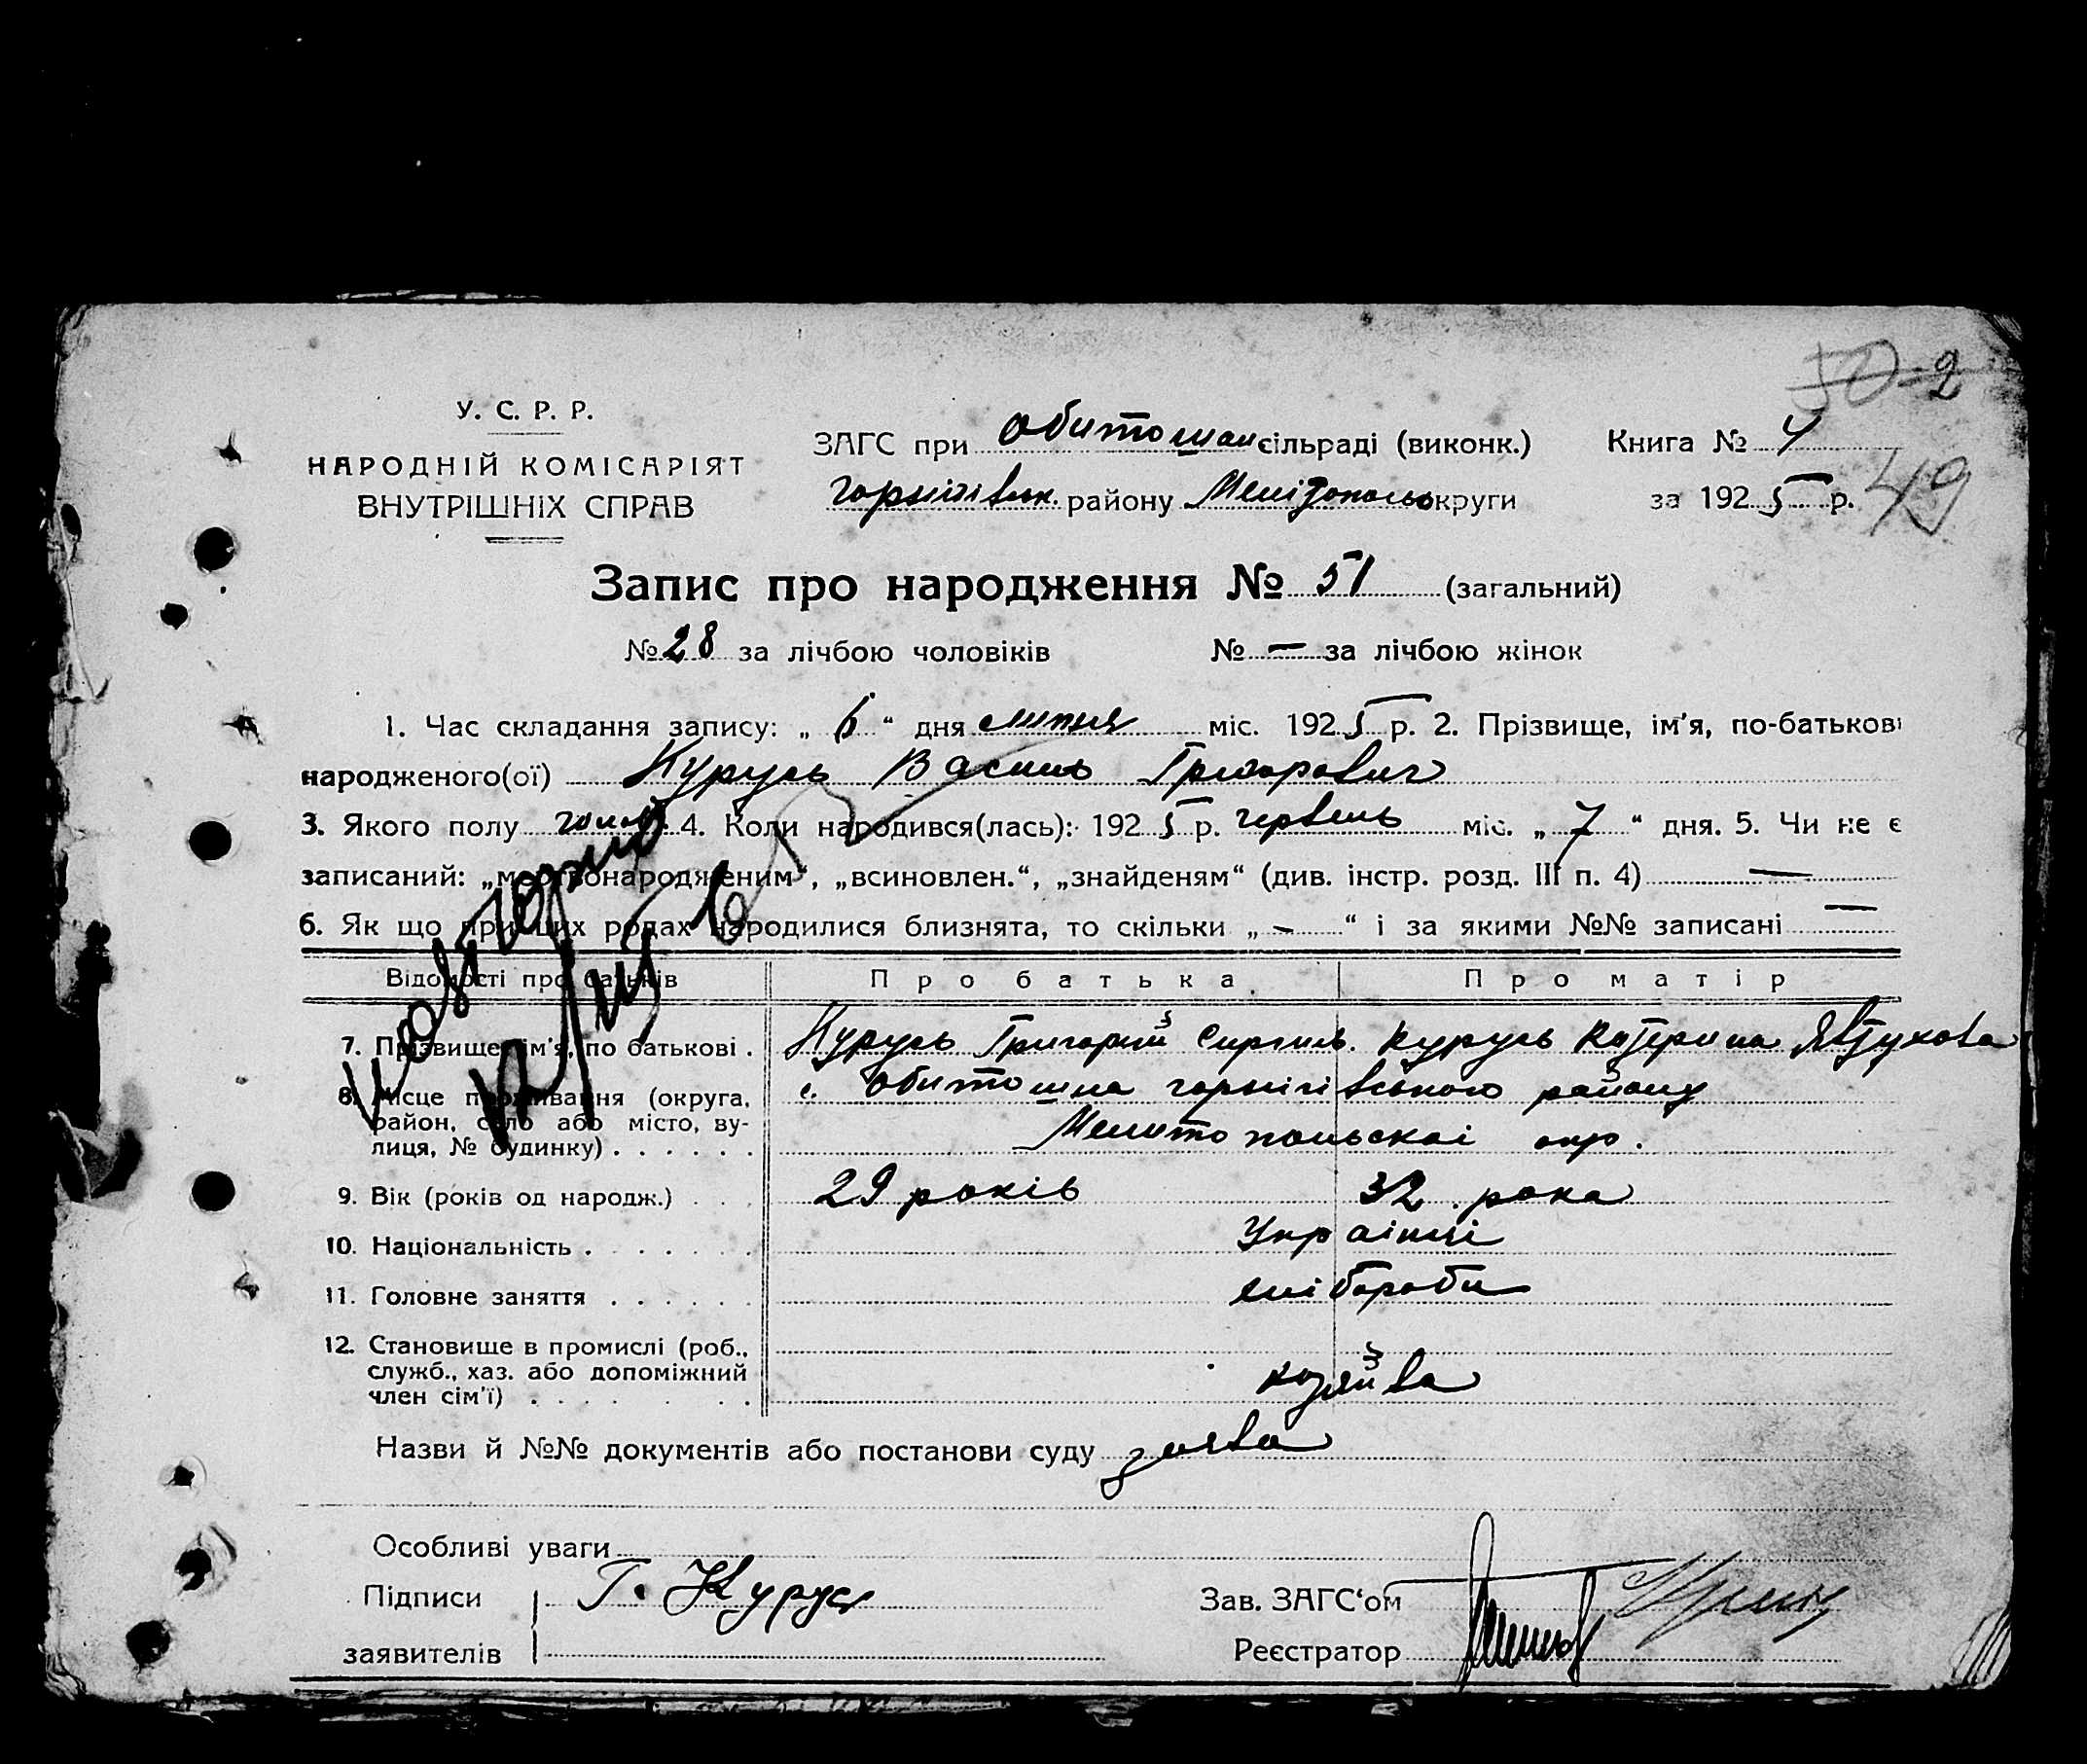 50-2
У. С. Р. Р.
НАРОДНІЙ КОМІСАРІЯТ
ВНУТРІШНІХ СПРАВ
ЗАГС при Обитошан сільраді (виконк.) Книга № 4
району округи за 1925 р. 49
Запис про народження № 51 (загальний)
№ 28 за лічбою чоловіків № — за лічбою жінок
1. Час складання запису: „ 6 “ дня липня міс. 1925 р. 2. Прізвище, ім'я, по-батькові
народженого(ої) Курусь Василь Григорович
3. Якого полу 4. Коли народився(лась): 1925 р. червень міс. „ 7 “ дня. 5. Чи не є
записаний: „мертвонародженим“, „всиновлен.“, „знайденям“ (див. інстр. розд. III п. 4) —
6. Як що при цих родах народилися близнята, то скільки „ – “ і за якими №№ записані —
Відомості про батьків Про батька. Про матір
7. Прізвище, ім'я, по батькові . Курусь Григорий Курусь Катерина Явтухова
8. Місце проживання (округа, с. Обитошна чорнигівського району
район, село або місто, ву-
лиця, № будинку) . . . . . . Мелитопольскоі окр.
9. Вік (років од народж.) . . . 29 років 32 рока
10. Національність . . . . . . . Українці
11. Головне заняття . . . . . . хлібороби
12. Становище в промислі (роб.,
служб., хаз. або допоміжний
член сім'ї) . . . . . . хозяйва
Назви й №№ документів або постанови суду заява
Особливі уваги
Підписи Г. Курусь Зав. ЗАГС‘ом
заявителів Реєстратор